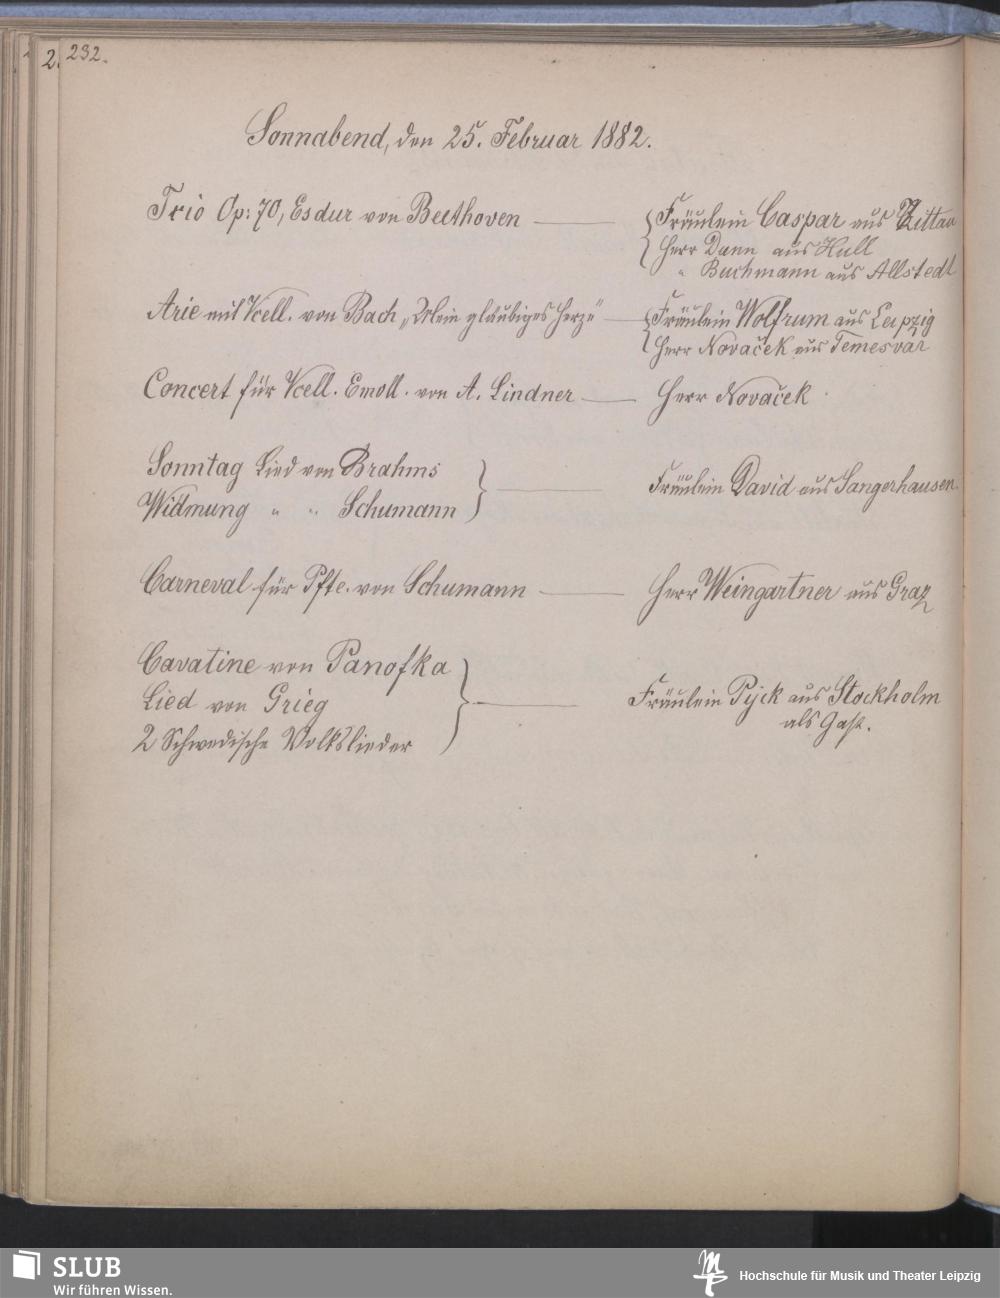 232.
2.
Sonnabend, den 25. Februar 1882.
Trio Op: 70, Esdur von Beethoven — { Fräulein Caspar aus Zittau
Herr Dann aus Hull
" Buchmann aus Allstedt
Arie mit Vcell. von Bach „Mein gläubiges Herze" — { Fräulein Wolfrum aus Leipzig
Herr Novaček aus Temesvár
Concert für Vcell. Emoll. von A. Lindner — Herr Novaček
Sonntag Lied von Brahms
Widmung " " Schumann } — Fräulein David aus Sangerhausen.
Carneval für Pfte. von Schumann — Herr Weingartner aus Graz
Cavatine von Panofka
Lied von Grieg
2 Schwedische Volkslieder } — Fräulein Pyck aus Stockholm
als Gast.
SLUB
Wir führen Wissen.
Hochschule für Musik und Theater Leipzig